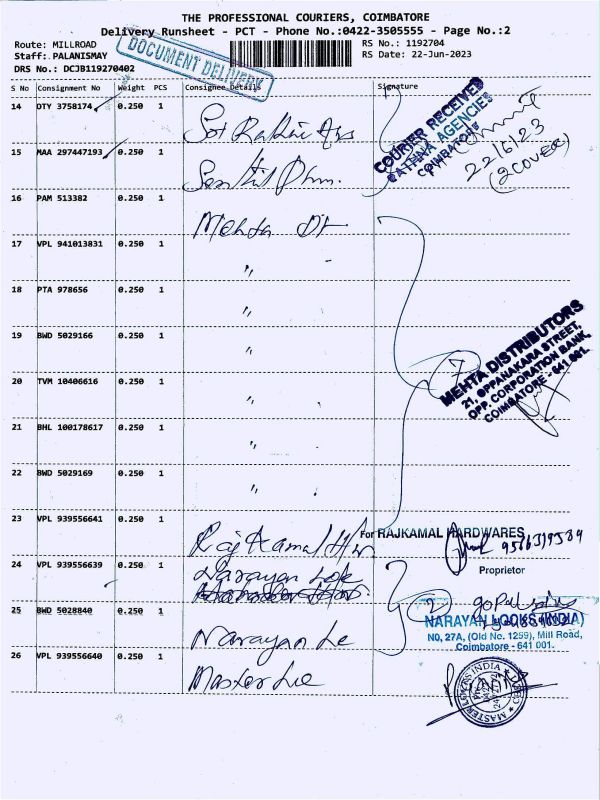 THE PROFESSIONAL COURIERS, COIMBATORE
Delivery Runsheet - PCT - Phone No.:0422-3505555 - Page No.:2
Route: MILLROAD
Staff: PALANISMAY
DRS No.: DCJB119270402
DOCUMENT DELIVERY
RS No.: 1192704
RS Date: 22-Jun-2023
S No Consignment No Weight PCS Consignee Details Signature
14 OTY 3758174 0.250 1
COURIER RECEIVED
COIMBATORE
22/6/23
(2 COVER)
15 MAA 297447193 0.250 1
16 PAM 513382 0.250 1 Mehta Dt
17 VPL 941013831 0.250 1 "
18 PTA 978656 0.250 1 "
19 BWD 5029166 0.250 1 "
7
MEHTA DISTRIBUTORS
21, OPPANAKARA STREET,
OPP. CORPORATION BANK,
COIMBATORE - 641 001.
20 TVM 10406616 0.250 1 "
21 BHL 100178617 0.250 1 "
22 BWD 5029169 0.250 1 "
23 VPL 939556641 0.250 1 Raj Kamal H/w
For RAJKAMAL HARDWARES
Proprietor
24 VPL 939556639 0.250 1 Narayan Lok
2
NARAYAN LOCKS (INDIA)
NO, 27A, (Old No. 1259), Mill Road,
Coimbatore - 641 001.
25 BWD 5028840 0.250 1 Narayan Le
26 VPL 939556640 0.250 1 Master Lie